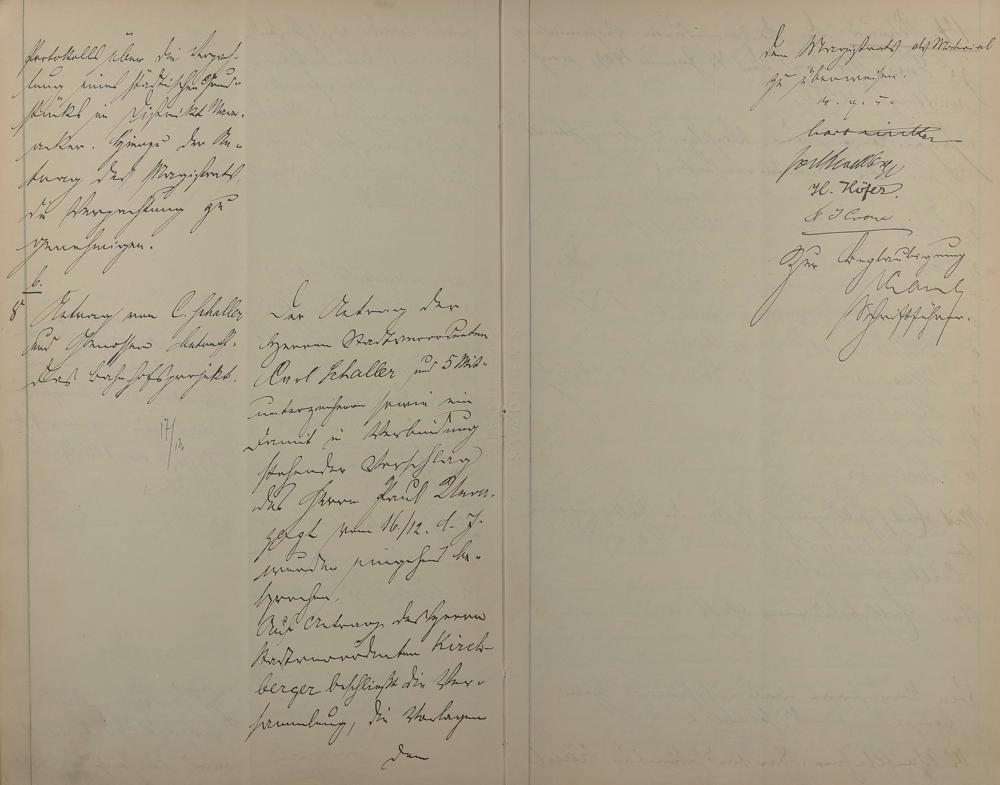 Protokolls über die Verpach-
tung eines städtischen Grund-
stücks im Distrikt
acker. Hierzu der An-
trag des Magistrats,
die Verpachtung zu
genehmigen.
6.
Antrag von C. Schaller
und Genossen betreff.
das Bahnhofsprojekt.
17/12
Der Antrag der
Herren Stadtverordneten
Carl Schaller und 5 Mit-
unterzeichner sowie ein
damit in Verbindung
stehender Vorschlag
des Herrn Paul
vom 16/12. d. J.
wurden eingehend be-
sprochen.
Auf Antrag des Herrn
Stadtverordneten Kirch-
berger beschließt die Ver-
sammlung, die Vorlagen
dem
dem Magistrat als Material
zu überweisen.
v. g. u.
H. Höfer.
Zur Beglaubigung
Schriftführer.